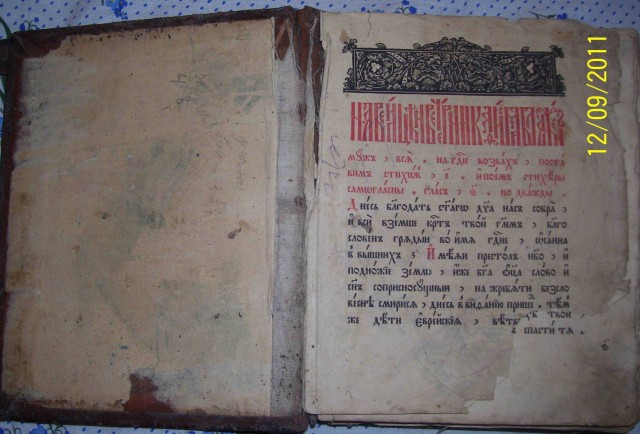 мꙋжъ, всѧ̑ . на гдⷭ҇и возвахъ, поста
вимъ стихѡ́въ, і҃ . и҆ пое́мъ стихе́ры
самогла́сны . гла́съ, ѕ҃ . по два́жды .
Дне́сь благода́ть ст҃а́гѡ дх҃а на́съ собра̀,
и҆ всѝ взе́мше крⷭ҇тъ тво́й гл҃емъ, благо
слове́нъ грѧды́й во и҆́мѧ гдⷭ҇не, ѡ҆са́нна
в вы́шнихъ И҆мѣ́ѧи престо́лъ не́бо, и҆
подно́жїе зе́млю, и҆́же бг҃а ѻ҆ц҃а̀ сло́во и҆
сн҃ъ соприсносꙋ́щныи, на жребѧ́ти безсло
ве́снѣ смири́сѧ, дне́сь в виѳа́нїю прише́дъ . тѣ́м
же дѣ́ти є҆вре́йскїѧ, вѣ́тв
твои́,
в спасти́ тѧ .
12/09/2011